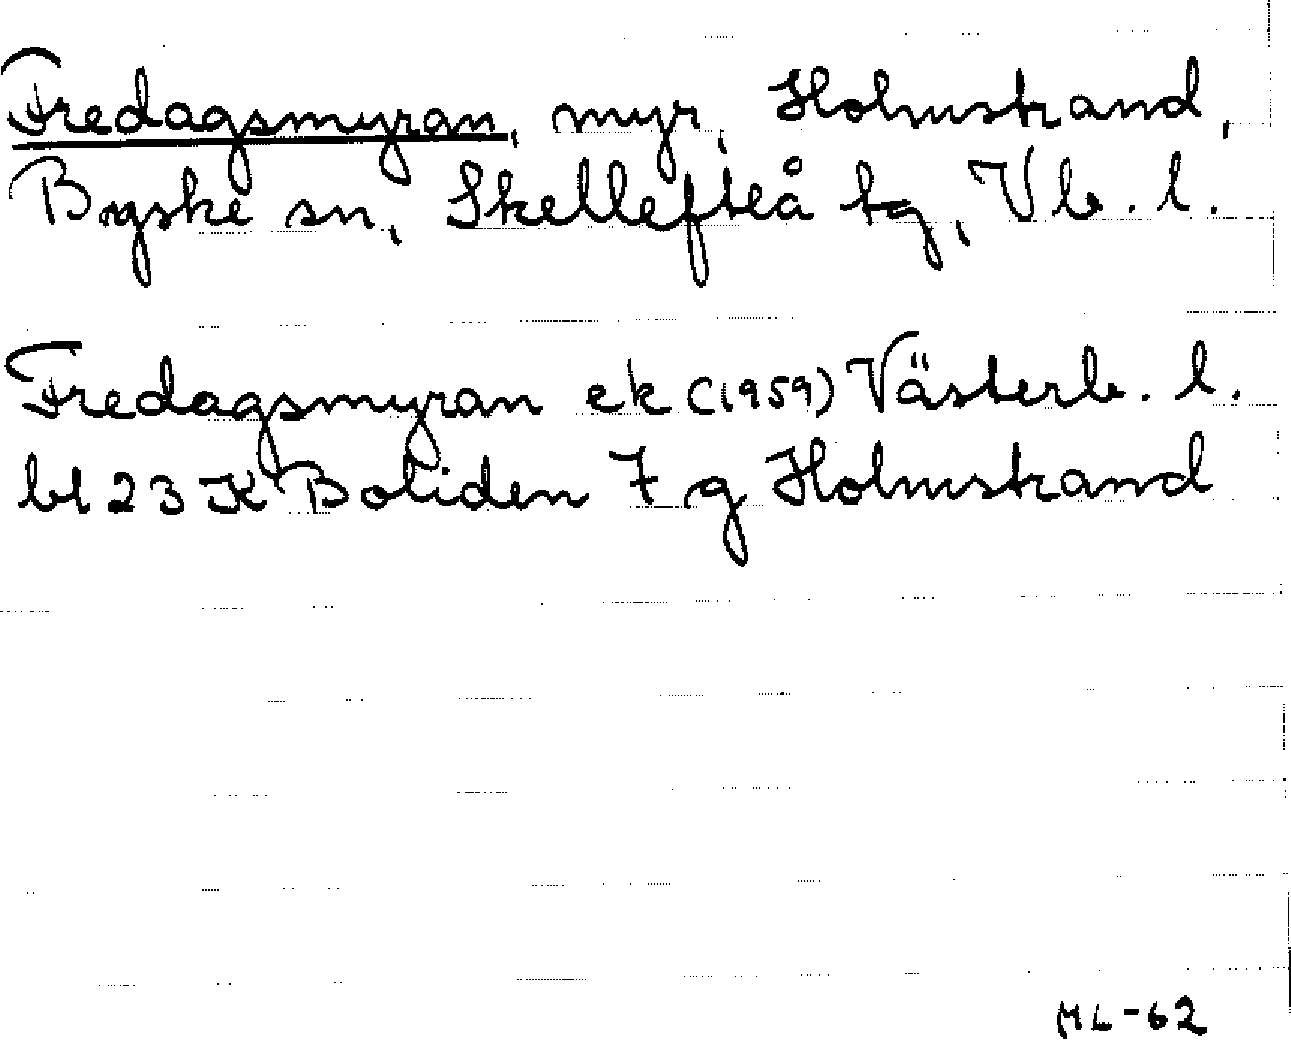 Fredagsmyran, myr, Holmstrand,
Byske sn, Skellefteå tg, Vb. l.
Fredagsmyran ek (1959) Västerb. l.
bl 23 K Boliden 7 g Holmstrand
ML-62